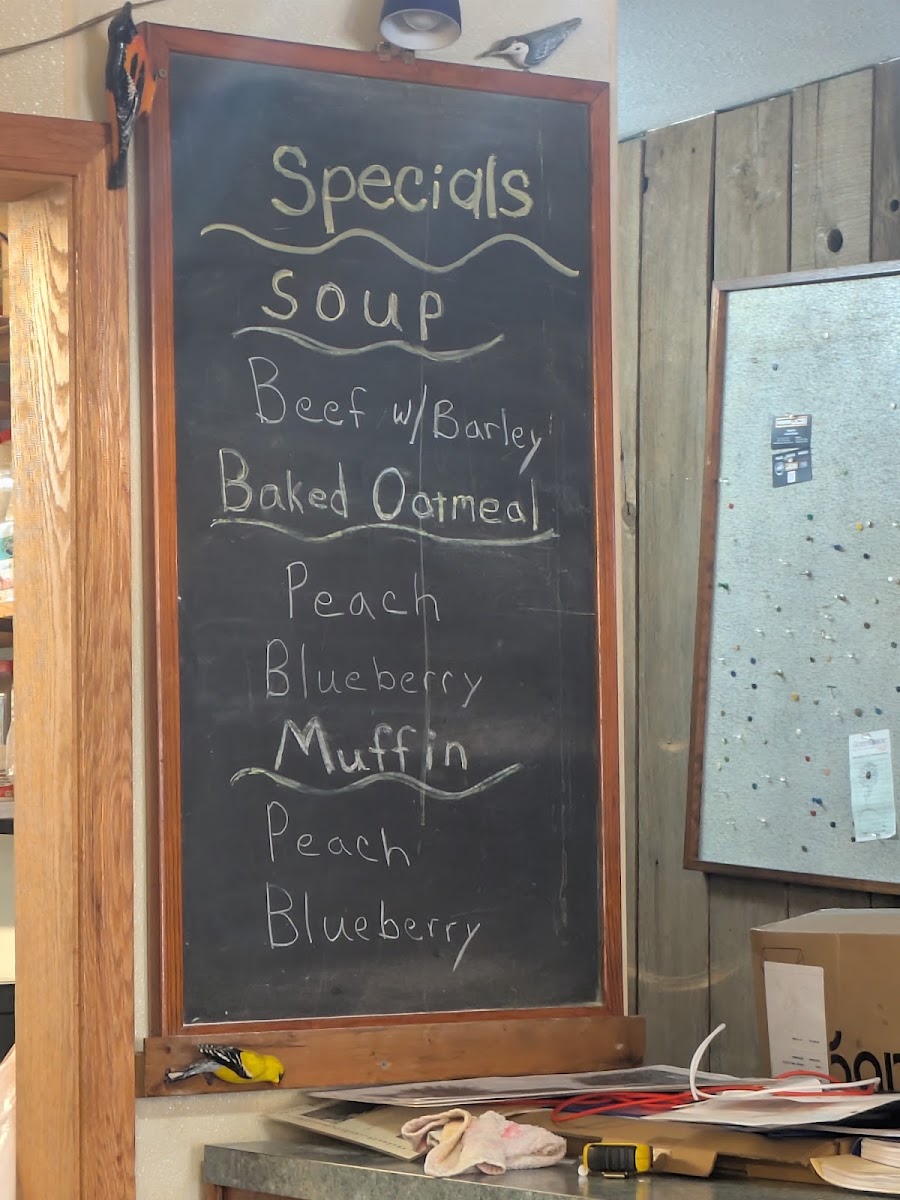 Specials
Soup
Beef w/Barley
Baked Oatmeal
Peach
Blueberry
Muffin
Peach
Blueberry